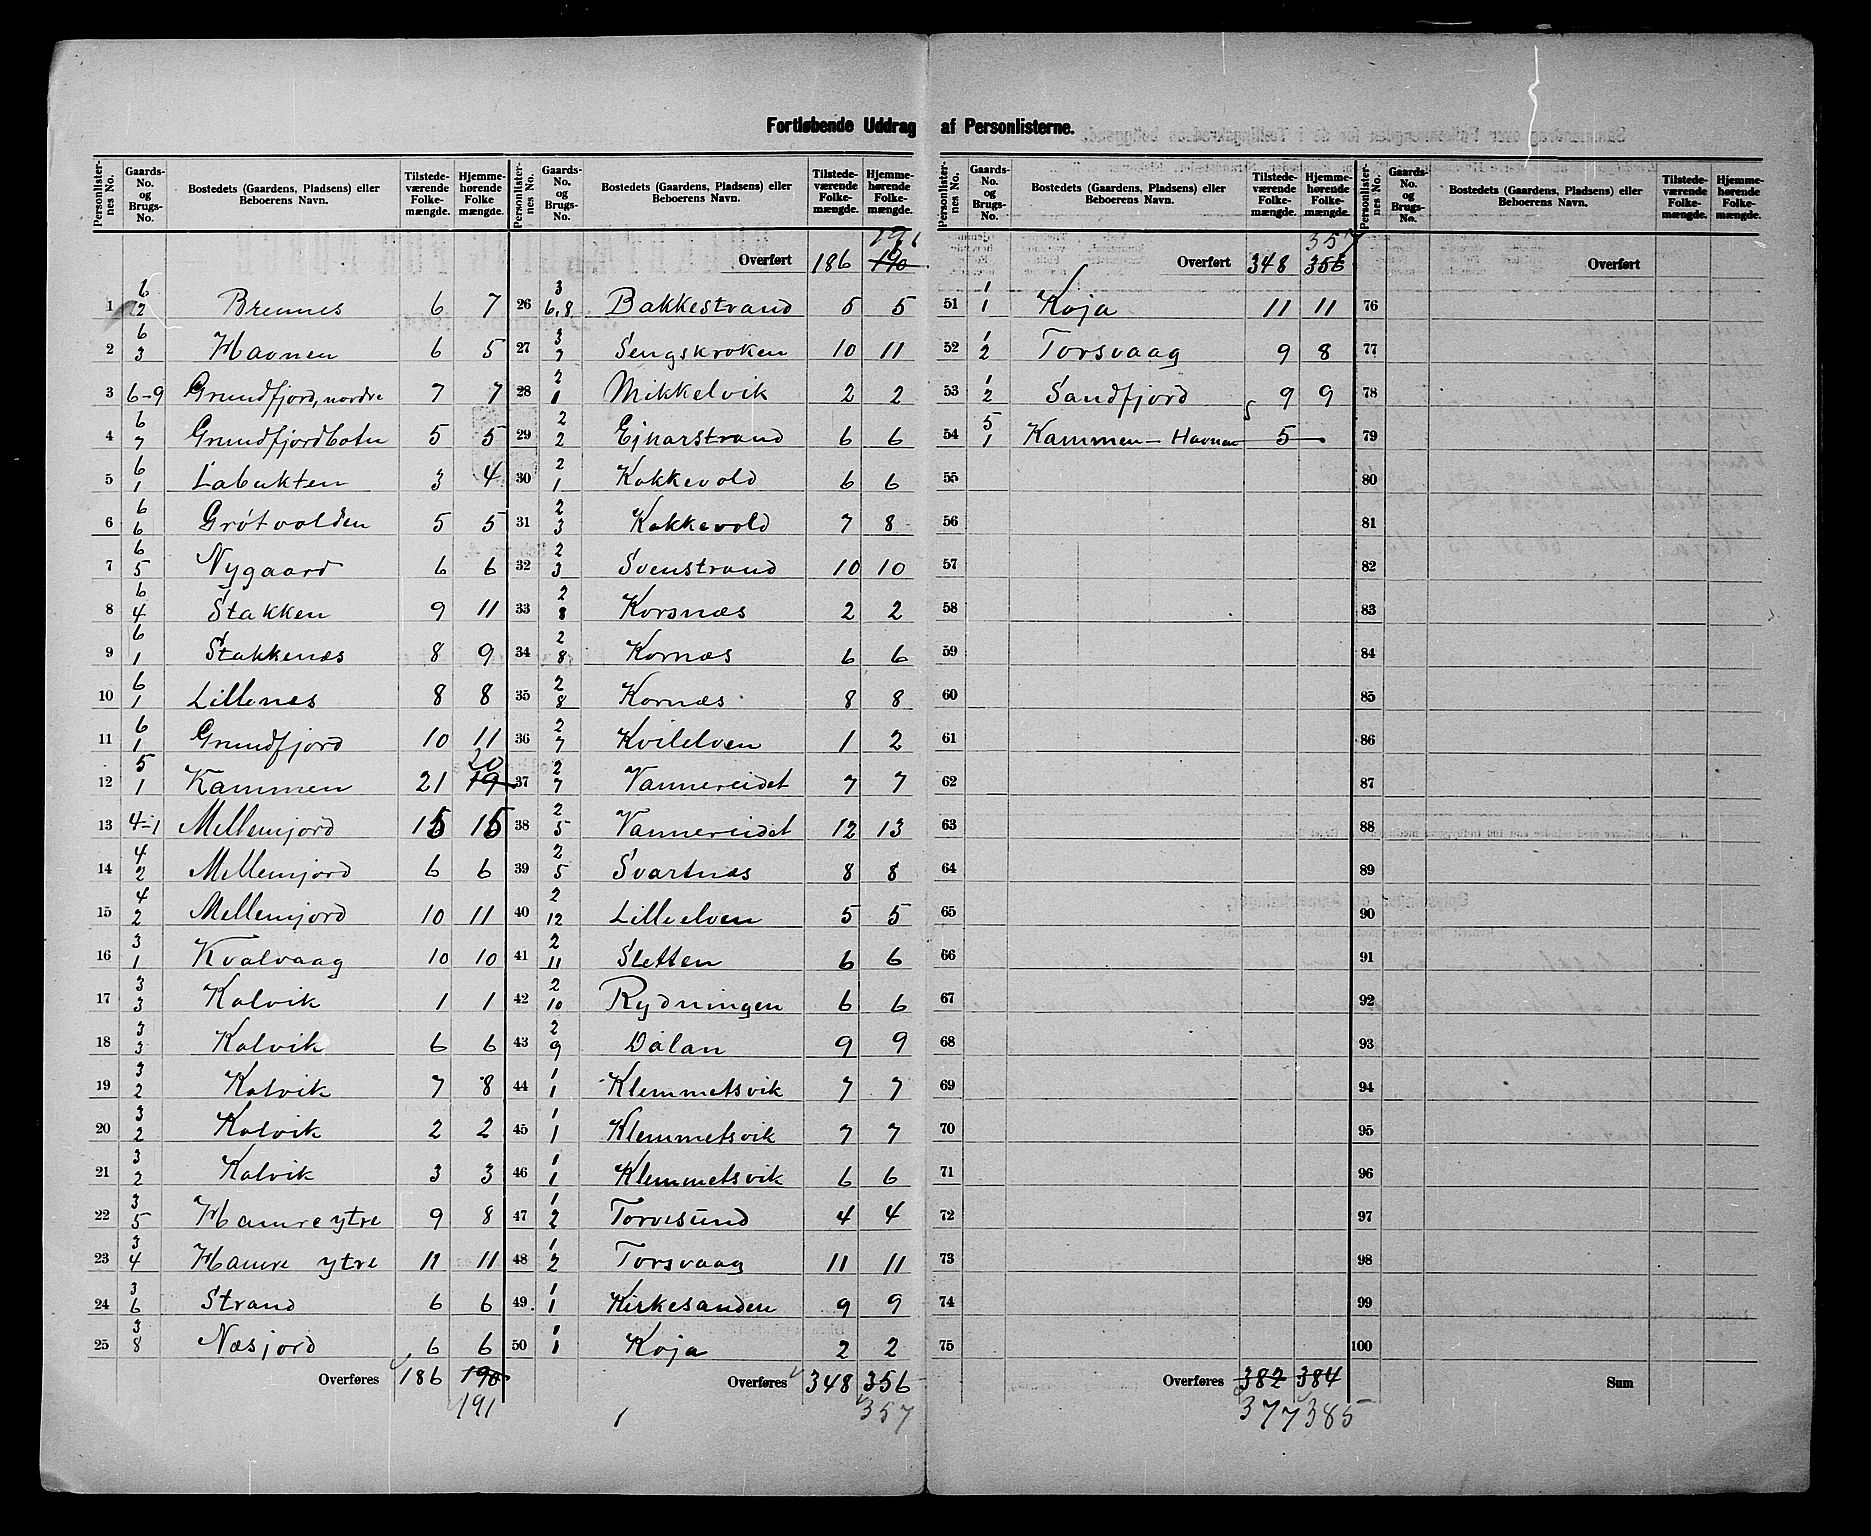 Fortløbende Uddrag af Personlisterne.
Personlister-nes No. Gaards-No. og Brugs-No. Bostedets (Gaardens, Pladsens) eller Beboerens Navn. Tilstede-værende Folke-mængde. Hjemme-hørende Folke mængde.
1 6 2 Brennes 6 7
2 6 3 Havnen 6 5
3 6-9 Grundfjord, nordre 7 7
4 6 7 Grundfjordbotn 5 5
5 6 1 Labukten 3 4
6 6 6 Grøtvolden 5 5
7 6 5 Nygaard 6 6
8 6 4 Stakken 9 11
9 6 1 Stakkenæs 8 9
10 6 1 Lillenes 8 8
11 6 1 Grundfjord 10 11
12 5 1 Kammen 21 19 20
13 4-1 Mellemjord 15 15
14 4 2 Mellemjord 6 6
15 4 2 Mellemjord 10 11
16 3 1 Kvalvaag 10 10
17 3 3 Kalvik 1 1
18 3 3 Kalvik 6 6
19 3 2 Kalvik 7 8
20 3 2 Kalvik 2 2
21 3 2 Kalvik 3 3
22 3 5 Hamre ytre 9 8
23 3 4 Hamre ytre 11 11
24 3 6 Strand 6 6
25 3 8 Næsjord 6 6
Overføres 186 190
191
Personlister-nes No. Gaards-No. og Brugs-No. Bostedets (Gaardens, Pladsens) eller Beboerens Navn. Tilstede-værende Folke-mængde. Hjemme-hørende Folke-mængde.
191
Overført 186 190
26 3 6,8 Bakkestrand 5 5
27 3 7 Sengskroken 10 11
28 2 1 Mikkelvik 2 2
29 2 2 Ejnarstrand 6 6
30 2 1 Kokkevold 6 6
31 2 3 Kokkevold 7 8
32 2 3 Svenstrand 10 10
33 2 8 Korsnæs 2 2
34 2 8 Kornæs 6 6
35 2 8 Kornæs 8 8
36 2 7 Kvilelven 1 2
37 2 7 Vannereidet 7 7
38 2 5 Vannereidet 12 13
39 2 5 Svartnæs 8 8
40 2 12 Lilleelven 5 5
41 2 11 Sletten 6 6
42 2 10 Rydningen 6 6
43 2 9 Dalan 9 9
44 1 1 Klemmetsvik 7 7
45 1 1 Klemmetsvik 7 7
46 1 1 Klemmetsvik 6 6
47 1 2 Torvesund 4 4
48 1 2 Torsvaag 11 11
49 1 1 Kirkesanden 9 9
50 1 1 Koja 2 2
Overføres 348 356
357
Personlister-nes No. Gaards-No. og Brugs-No. Bostedets (Gaardens, Pladsens) eller Beboerens Navn. Tilstede-værende Folke-mængde. Hjemme-hørende Folke-mængde.
357
Overført 348 356
51 1 1 Koja 11 11
52 1 2 Torsvaag 9 8
53 1 2 Sandfjord 9 9
54 5 1 Kammen - Havnen 5 -
55
56
57
58
59
60
61
62
63
64
65
66
67
68
69
70
71
72
73
74
75
Overføres 382 384
377 385
Personlister-nes No. Gaards-No. og Brugs-No. Bostedets (Gaardens, Pladsens) eller Beboerens Navn. Tilstede-værende Folke-mængde. Hjemme-hørende Folke-mængde.
Overført
76
77
78
79
80
81
82
83
84
85
86
87
88
89
90
91
92
93
94
95
96
97
98
99
100
Sum